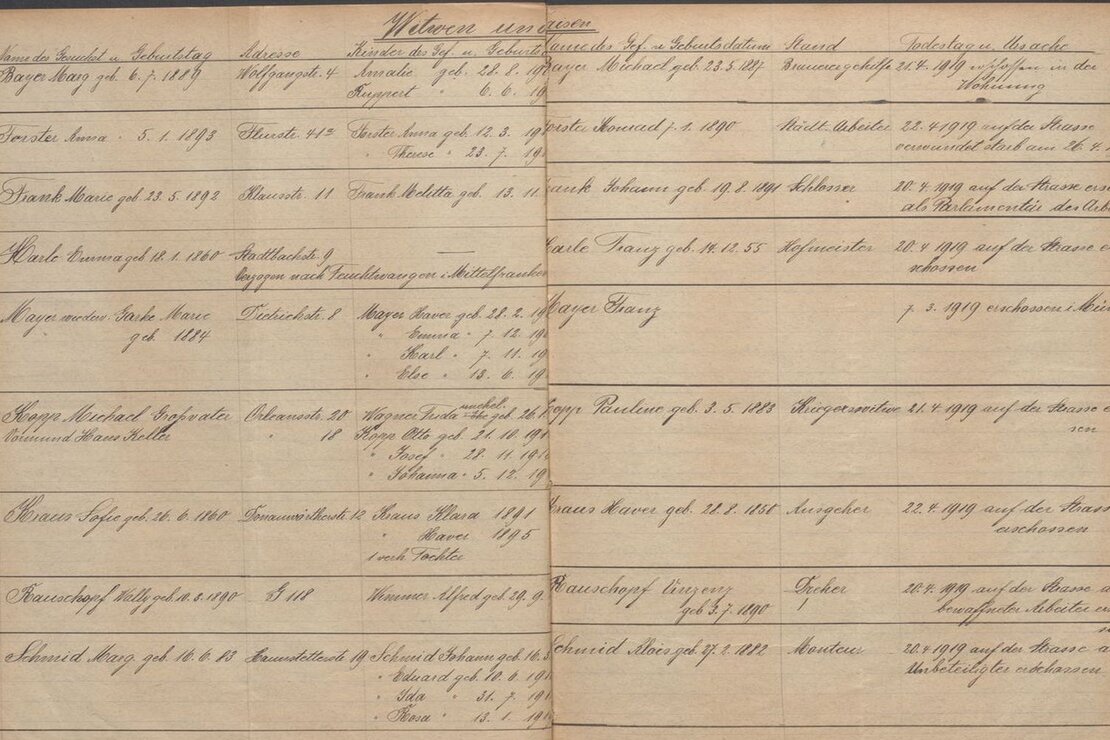 Witwen und Waisen
Name des Gesuchst. u. Geburtstag Adresse Kinder des Gef. u. Geburts Name des Gef. u. Geburtsdatum Stand Todestag u. Ursache
Bayer Marg geb. 6. 7. 1889 Wolfgangstr. 4 Amalie geb. 28. 8. 19 Bayer Michael geb. 23. 5. 1887 Brauereigehilfe 21. 4. 1919 erschossen in der
Ruppert " 6. 6. 19 Wohnung
Forster Anna " 5. 1. 1893 Flurstr. 41a Forster Anna geb. 12. 3. 19 Forster Konrad 7. 1. 1890 Städt. Arbeiter 22. 4 1919 auf der Strasse
" Therese " 23. 7. 19 verwundet starb am 26. 4. 1
Frank Marie geb. 23. 5. 1892 Klausstr. 11 Frank Melitta geb. 13. 11. Frank Johann geb. 19. 8. 1891 Schlosser 20. 4. 1919 auf der Strasse ers
als Parlamentär des Arb
Karle Emma geb 18. 1. 1860 Stadtbachstr. 9 — Karle Franz geb. 14. 12. 55 Hofmeister 20. 4 1919 auf der Strasse er
Verzogen nach Feuchtwangen i. Mittelfranken schossen
Mayer wiederv. Garke Marie Dietrichstr. 8 Mayer Xaver geb. 28. 2. 19 Mayer Franz 7. 3. 1919 erschossen i. Mün
geb. 1884 " Emma " 7. 12. 19
" Karl " 7. 11. 19
" Else " 13. 6. 19
Kopp Michael Großvater Orleansstr. 20 Wagner Frida unehel. geb. 26. Kopp Pauline geb. 3. 5. 1883 Kriegerswitwe 21. 4. 1919 auf der Strasse e
Vormund Hans Keller " 18 Kopp Otto geb. 21. 10. 191 sen
" Josef " 28. 11. 191
" Johanna " 5. 12. 19
Kraus Sofie geb. 26. 6. 1860 Donauwörtherstr 12 Kraus Klara 1891 Kraus Xaver geb. 28. 8. 1850 Ausgeher 22. 4. 1919 auf der Strass
" Xaver 1895 erschossen
1 verh. Tochter
Rauschopf Wally geb. 10. 8. 1890 G 118 Wimmer Alfred geb. 29. 9. Rauschopf Vinzenz Dreher 20. 4. 1919 auf der Strasse a
geb 3. 7. 1890 bewaffneter Arbeiter er
Schmid Marg. geb. 16. 6. 83 Haunstetterstr 19 Schmid Johann geb. 16. 3. Schmid Alois geb. 27. 2. 1882 Monteur 20. 4 1919 auf der Strasse a
" Eduard geb. 10. 6. 19 Unbeteiligter erschossen
" Ida " 31. 7. 19
" Rosa " 13. 1. 19